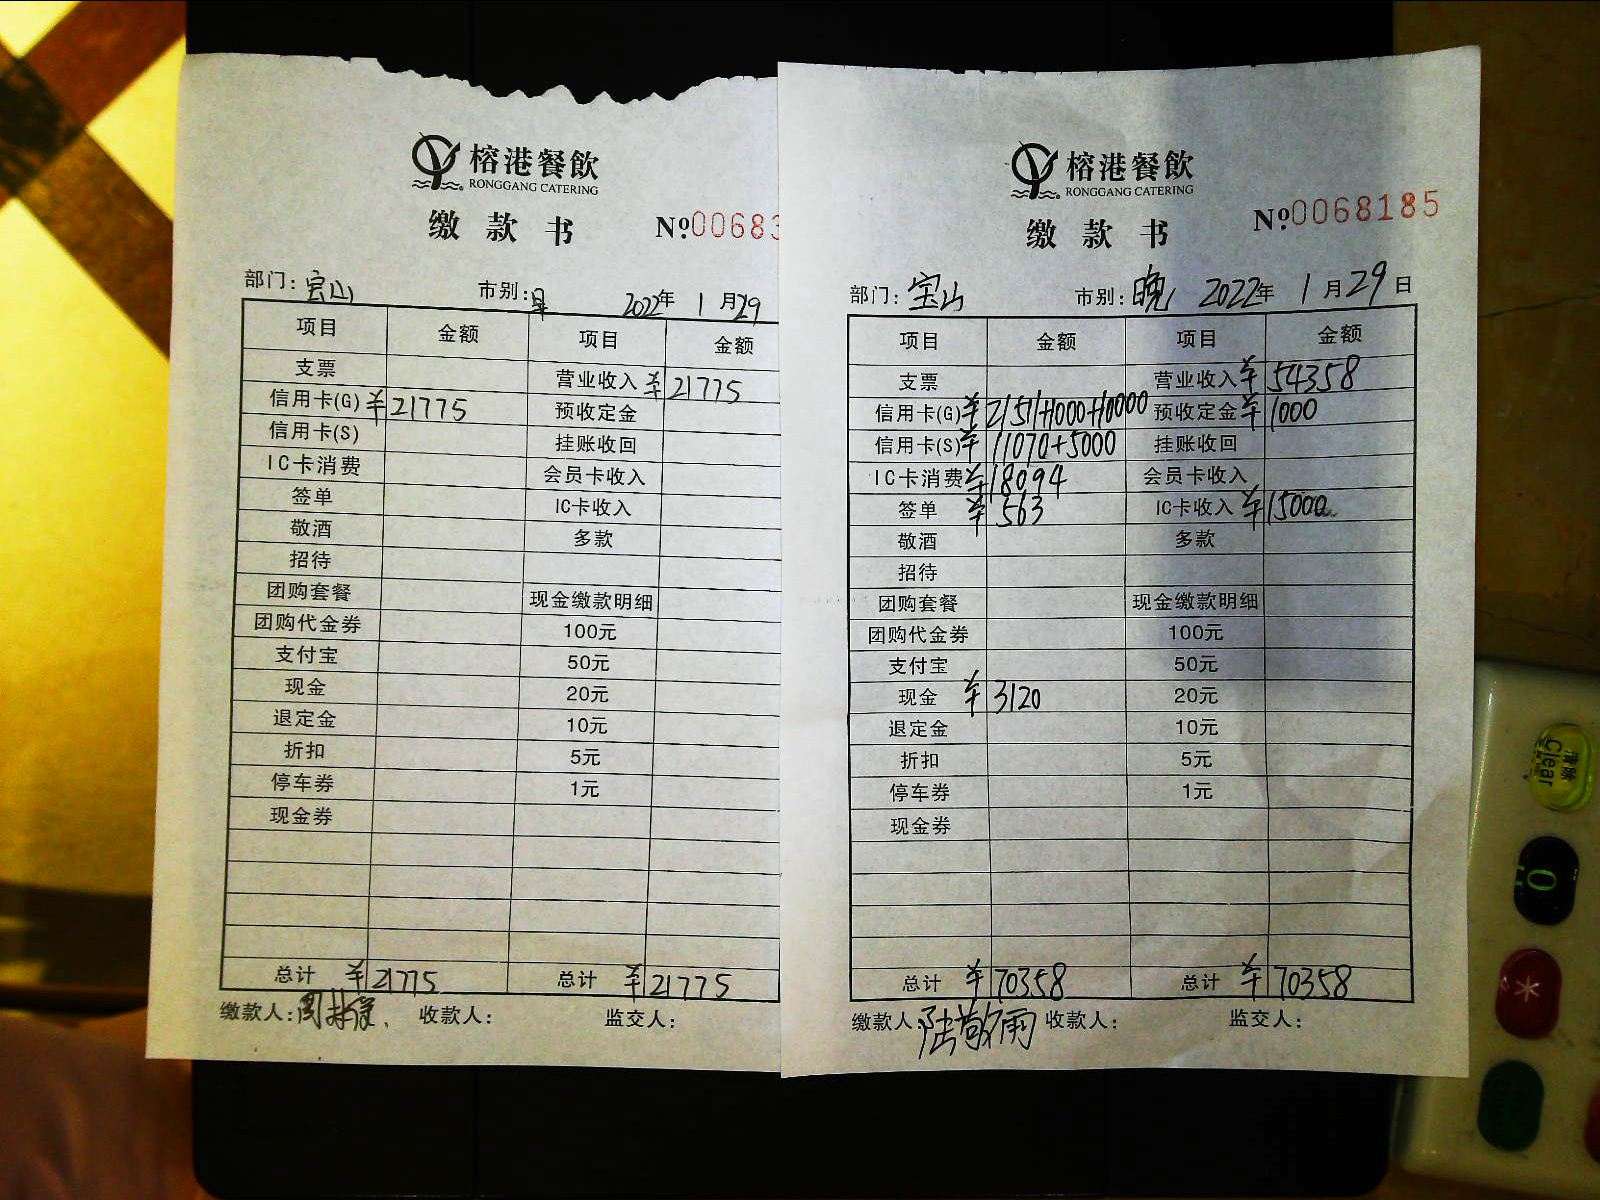 榕港餐飲
RONGGANG CATERING
缴款书 №0068
部门：宝山 市别： 2022年 1月29
项目 金额 项目 金额
支票 营业收入 ¥21775
信用卡(G) ¥21775 预收定金
信用卡(S) 挂账收回
IC卡消费 会员卡收入
签单 IC卡收入
敬酒 多款
招待
团购套餐 现金缴款明细
团购代金券 100元
支付宝 50元
现金 20元
退定金 10元
折扣 5元
停车券 1元
现金券
总计 ¥21775 总计 ¥21775
缴款人： 收款人： 监交人：
榕港餐飲
RONGGANG CATERING
缴款书 №0068185
部门：宝山 市别：晚 2022年 1月29日
项目 金额 项目 金额
支票 营业收入 ¥54358
信用卡(G) ¥21511+1000+10000 预收定金 ¥1000
信用卡(S) ¥11070+5000 挂账收回
IC卡消费 ¥18094 会员卡收入
签单 ¥563 IC卡收入 ¥15000
敬酒 多款
招待
团购套餐 现金缴款明细
团购代金券 100元
支付宝 50元
现金 ¥3120 20元
退定金 10元
折扣 5元
停车券 1元
现金券
总计 ¥70358 总计 ¥70358
缴款人 陆敬雨 收款人： 监交人：
清除
Clear
0
*